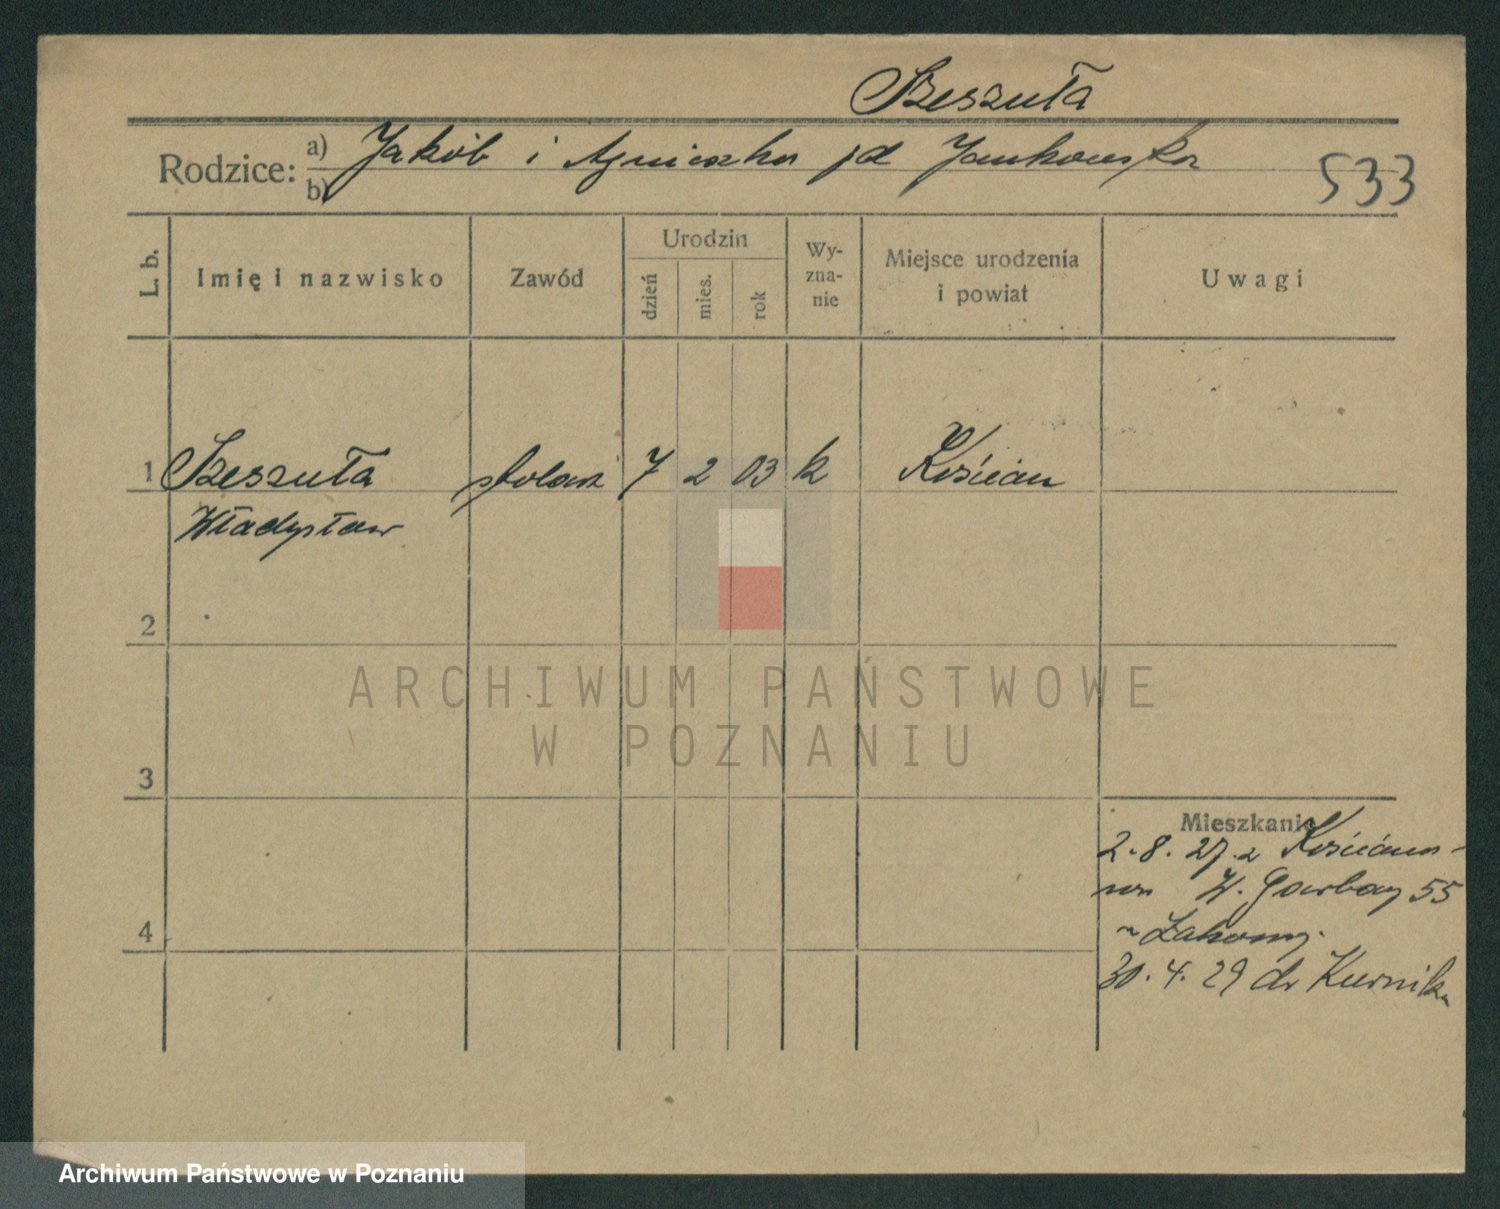 Szeszuła
Rodzice: a) Jakób i Agnieszka jd Jankowska
b)
533
L. b.
Imię i nazwisko
Zawód
Urodzin
dzień
mies.
rok
Wy-
zna-
nie
Miejsce urodzenia
i powiat
Uwagi
1 Szeszuła stolarz 7 2 03 k Kościan
Władysław
2
3
Mieszkanie
2.8.27 z Kościana
na W. Garbary 55
4
30.4.29 do Kurnika
ARCHIWUM PAŃSTWOWE
W POZNANIU
Archiwum Państwowe w Poznaniu